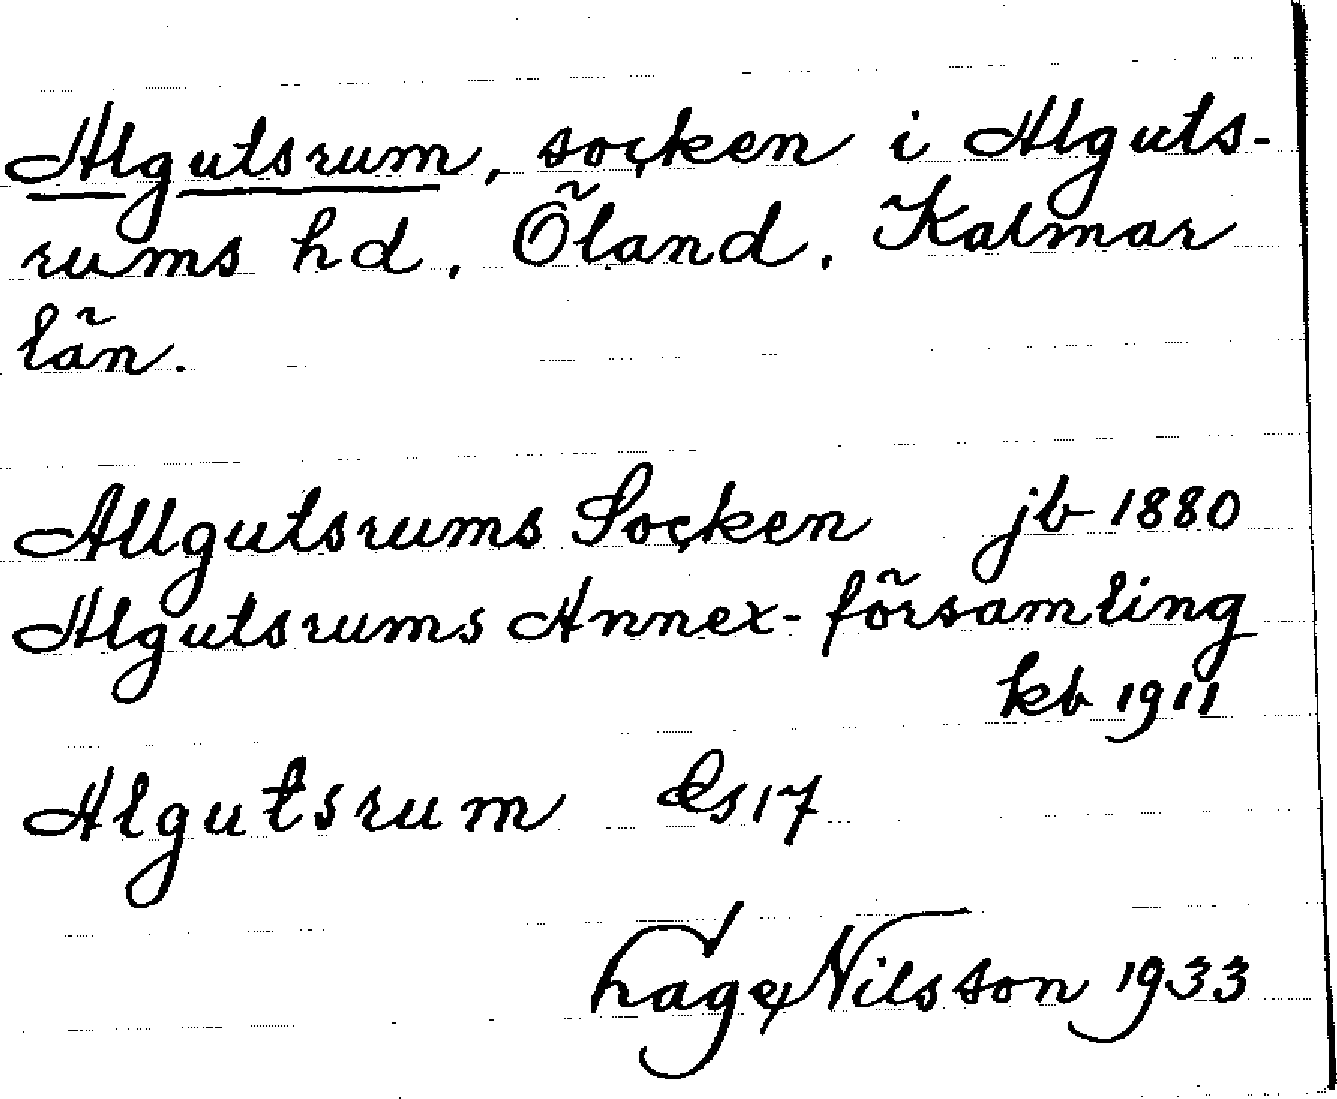 Algutsrum, socken i Alguts-
rums hd. Öland. Kalmar
län.
Allgutsrums Socken jb 1880
Algutsrums Annex-församling
kb 1911
Algutsrum Es 17
Nilsson 1933